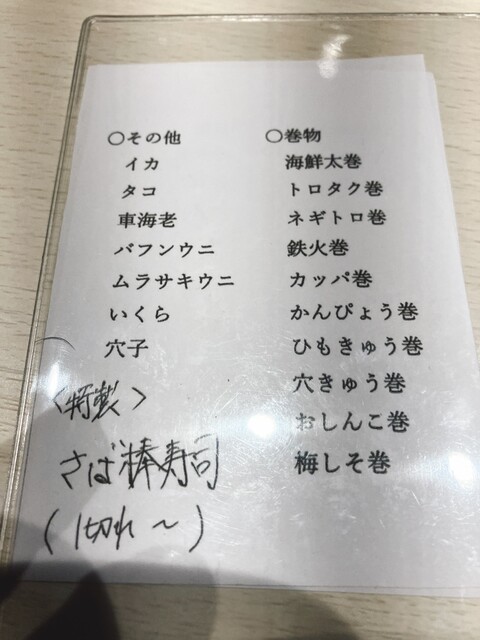 ○その他
イカ
タコ
車海老
バフンウニ
ムラサキウニ
いくら
穴子
<特製>
さば棒寿司
(1切れ～)
○巻物
海鮮太巻
トロタク巻
ネギトロ巻
鉄火巻
カッパ巻
かんぴょう巻
ひもきゅう巻
穴きゅう巻
おしんこ巻
梅しそ巻